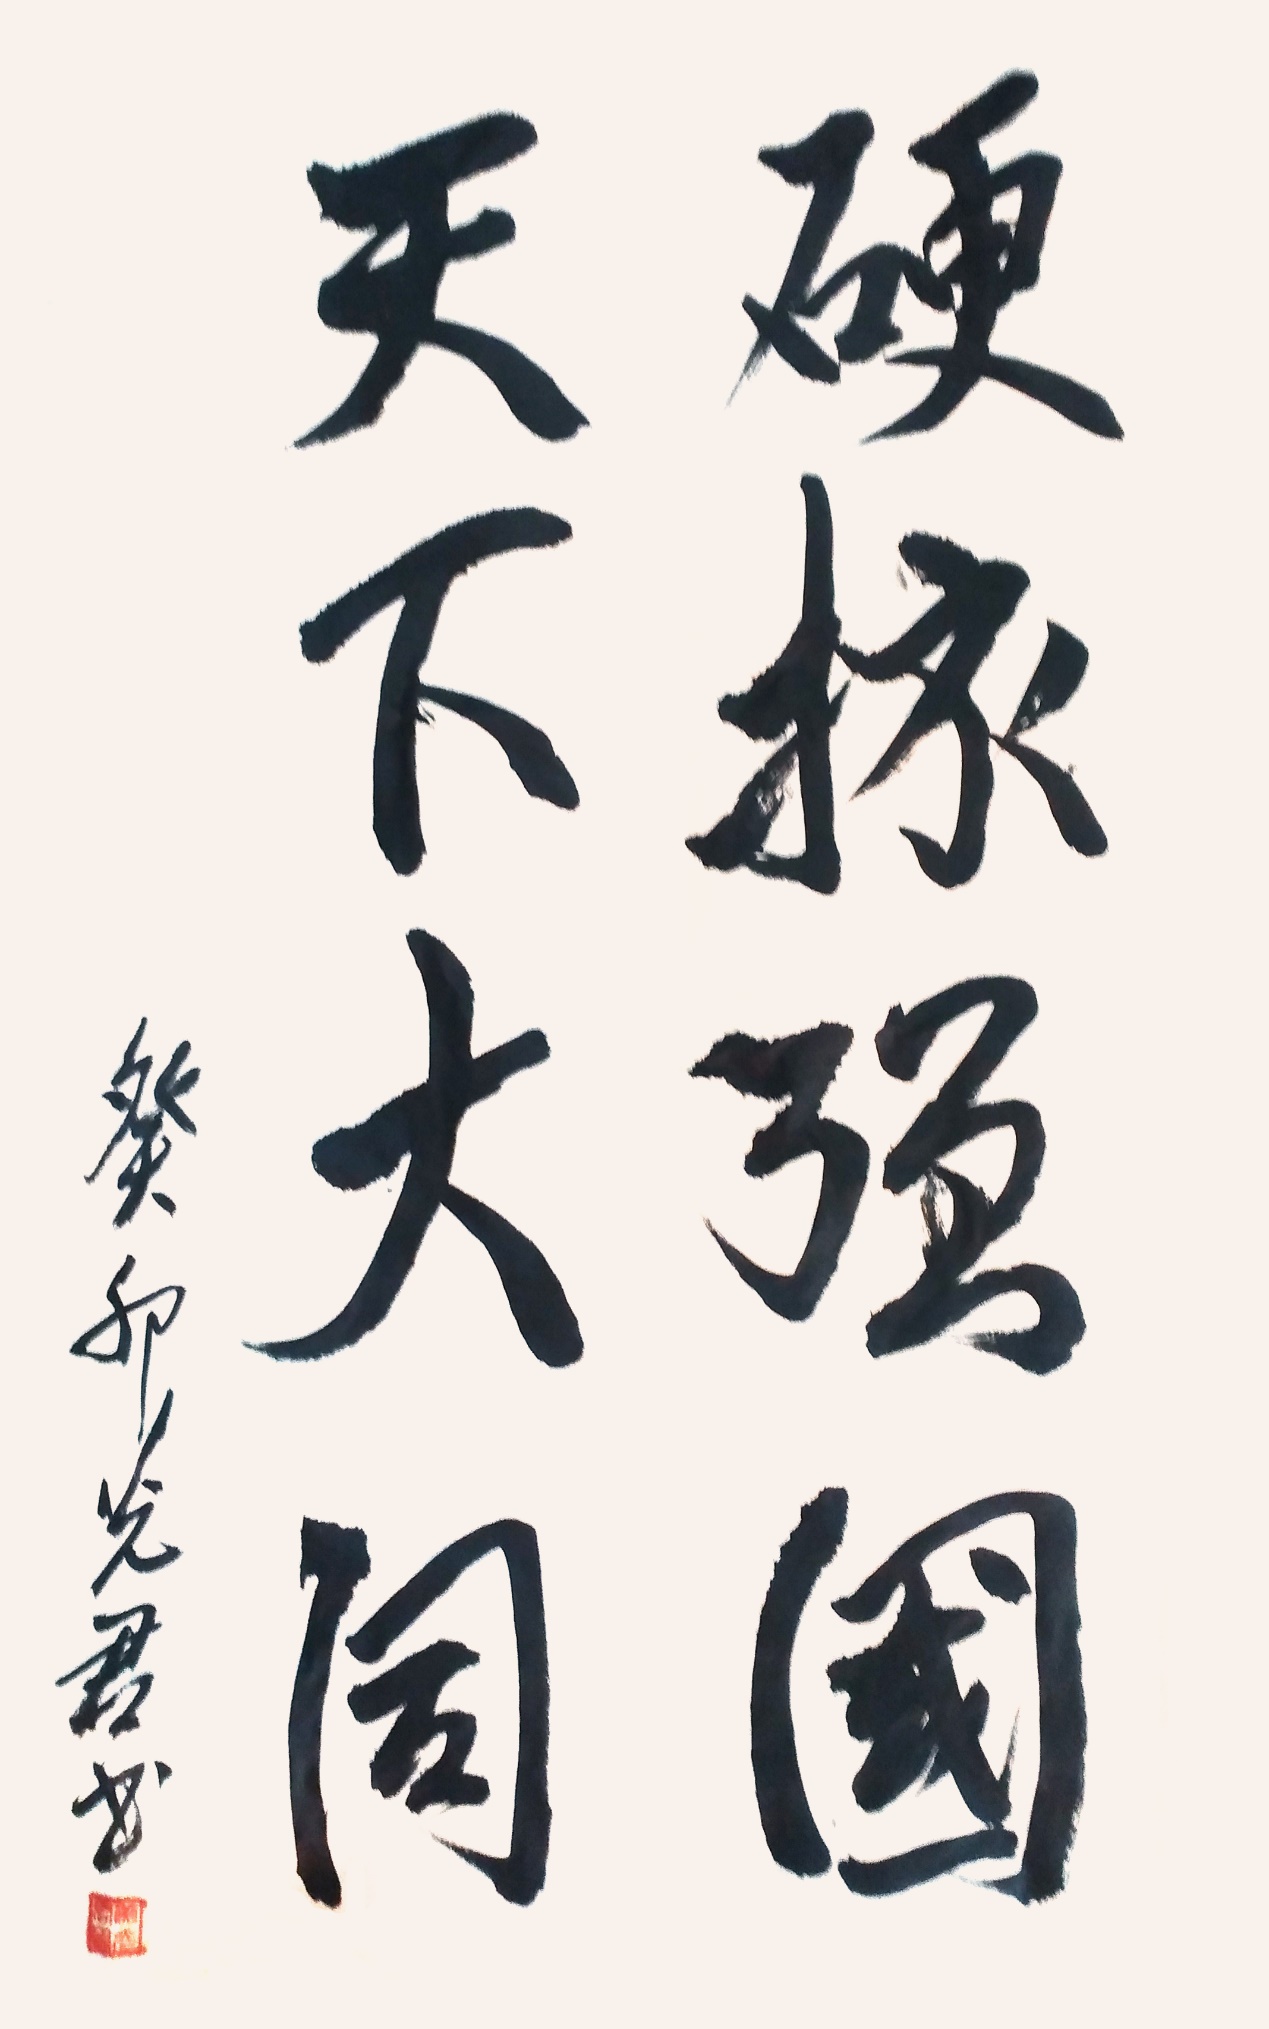 硬核强國
天下大同
癸卯光君书